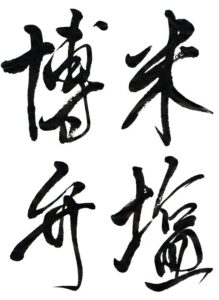 米塩
博弁